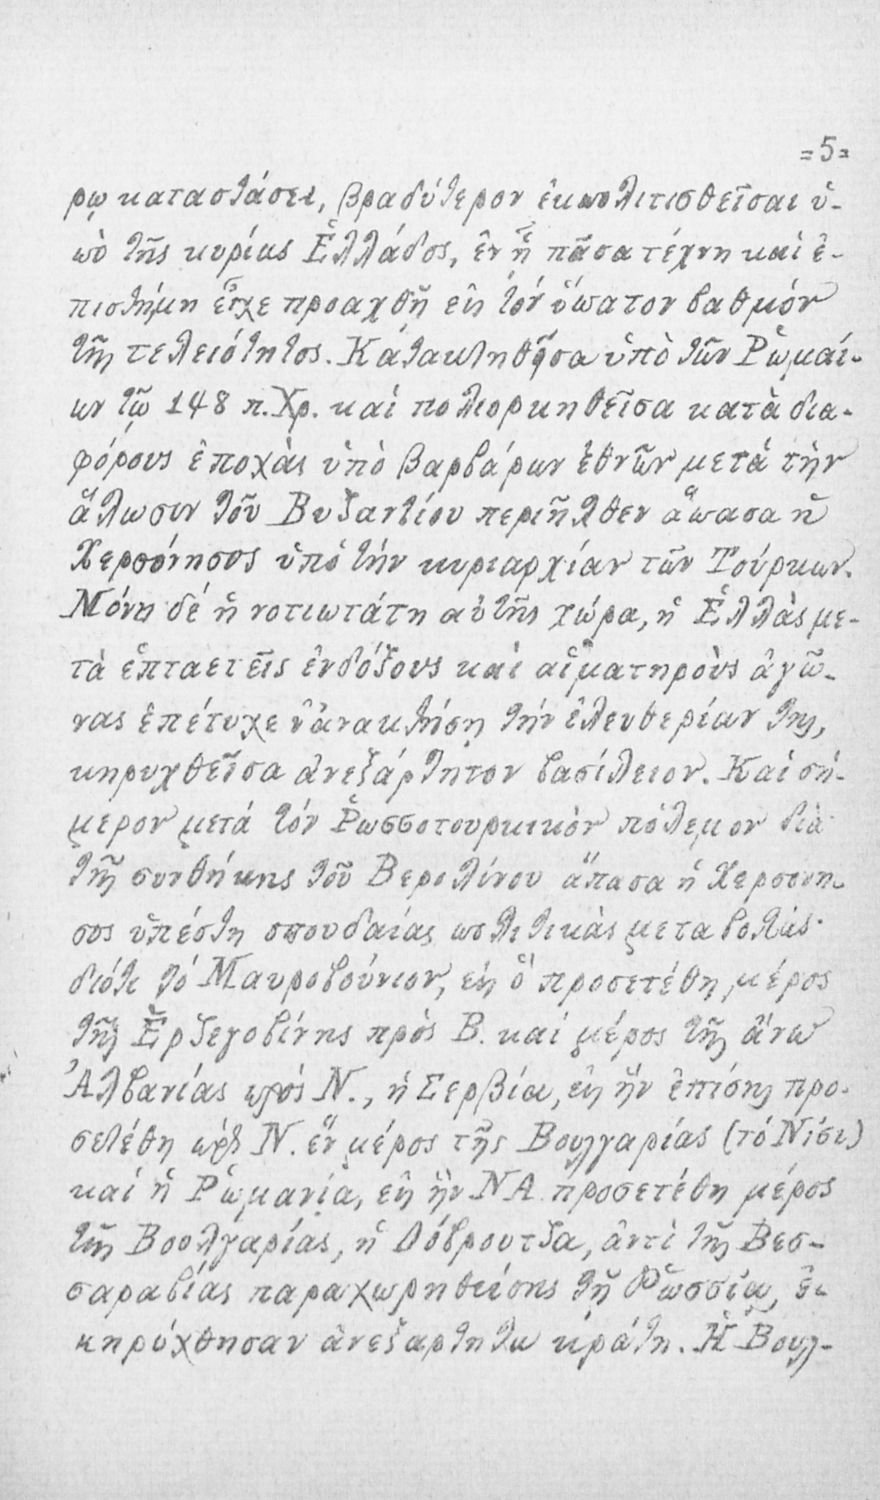 =5=
ρῳ καταστάσει, βραδύτερον ἐκπολιτισθεῖσαι ὑ-
πὸ τῆς κυρίας Ἑλλάδος, ἐν ᾗ πᾶσα τέχνη καὶ ἐ-
πιστήμη εἶχε προαχθῆ εἰς τὸν ὕπατον βαθμὸν
τῆς τελειότητος. Κατακτηθεῖσα ὑπὸ τῶν Ῥωμαί-
ων τῷ 148 π.Χρ. καὶ πολιορκηθεῖσα κατὰ δια-
φόρους ἐποχὰς ὑπὸ βαρβάρων ἐθνῶν μετὰ τὴν
ἅλωσιν τοῦ Βυζαντίου περιῆλθεν ἅπασα ἡ
Χερσόνησος ὑπὸ τὴν κυριαρχίαν τῶν Τούρκων.
Μόνη δὲ ἡ νοτιωτάτη αὐτῆς χώρα, ἡ Ἑλλὰς με-
τὰ ἑπταετεῖς ἐνδόξους καὶ αἱματηροὺς ἀγῶ-
νας ἐπέτυχε ν' ἀνακτήσῃ τὴν ἐλευθερίαν της,
κηρυχθεῖσα ἀνεξάρτητον βασίλειον. Καὶ σή-
μερον μετὰ τὸν Ῥωσσοτουρκικὸν πόλεμον διὰ
τῆς συνθήκης τοῦ Βερολίνου ἅπασα ἡ Χερσόνη-
σος ὑπέστη σπουδαίας πολιτικὰς μεταβολάς·
διότι τὸ Μαυροβούνιον, εἰς ὃ προσετέθη μέρος
τῆς Ἐρζεγοβίνης πρὸς Β. καὶ μέρος τῆς ἄνω
Ἀλβανίας πρὸς Ν., ἡ Σερβία, εἰς ἣν ἐπίσης προ-
σετέθη πρὸς Ν. ἓν μέρος τῆς Βουλγαρίας (τὸ Νίσι)
καὶ ἡ Ῥωμανία, εἰς ἣν ΝΑ. προσετέθη μέρος
τῆς Βουλγαρίας, ἡ Δόβρουτζα, ἀντὶ τῆς Βεσ-
σαραβίας παραχωρηθείσης τῇ Ῥωσσίᾳ, ἐ-
κηρύχθησαν ἀνεξάρτητα κράτη. Ἡ Βουλ-